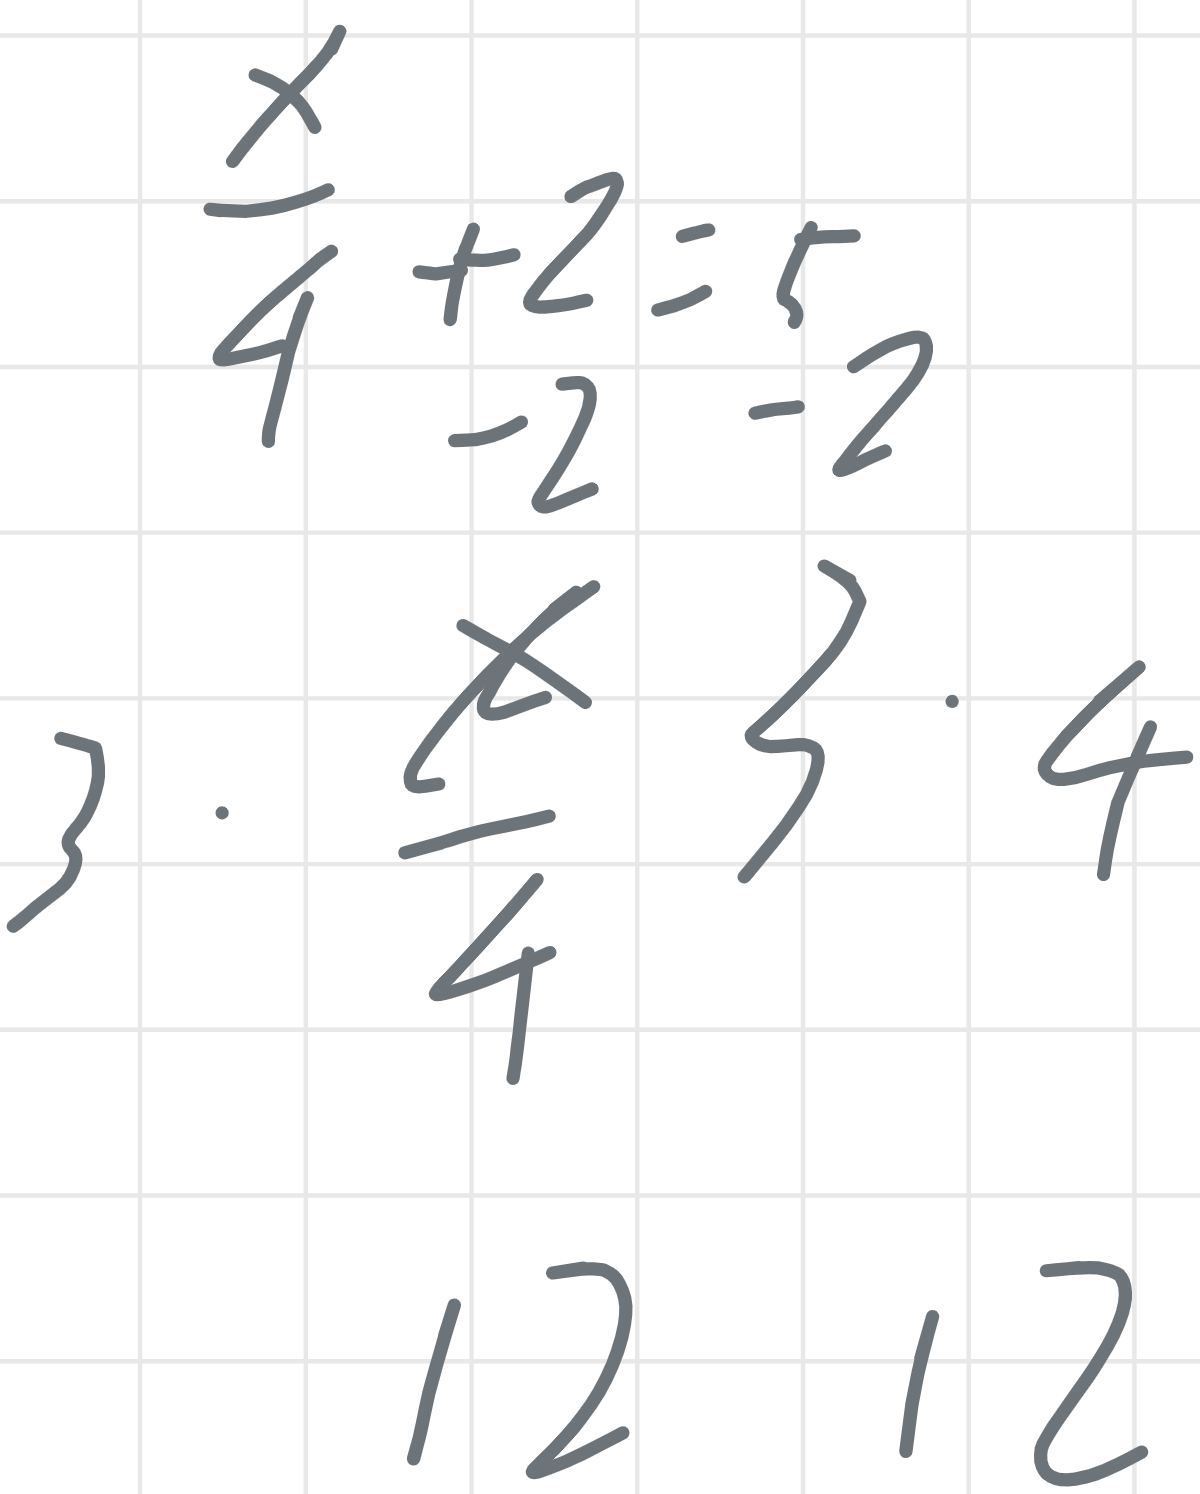 x/4 + 2 = 5
- 2 - 2
3 · x/4 3 · 4
12 12